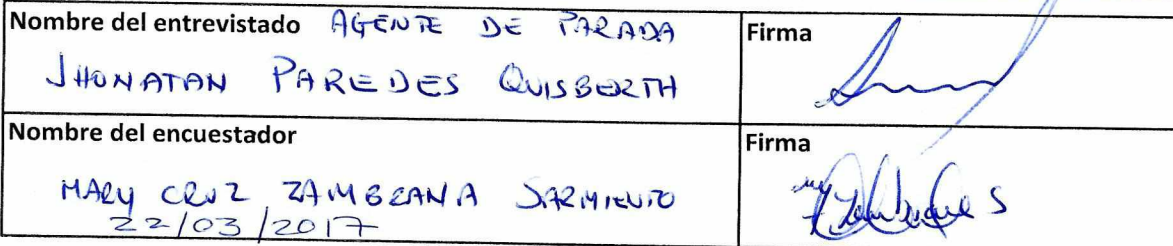 Nombre del entrevistado AGENTE DE PARADA
Firma
JHONATAN PAREDES QUISBERTH
Nombre del encuestador
Firma
MARY CRUZ ZAMBRANA SARMIENTO
22/03/2017